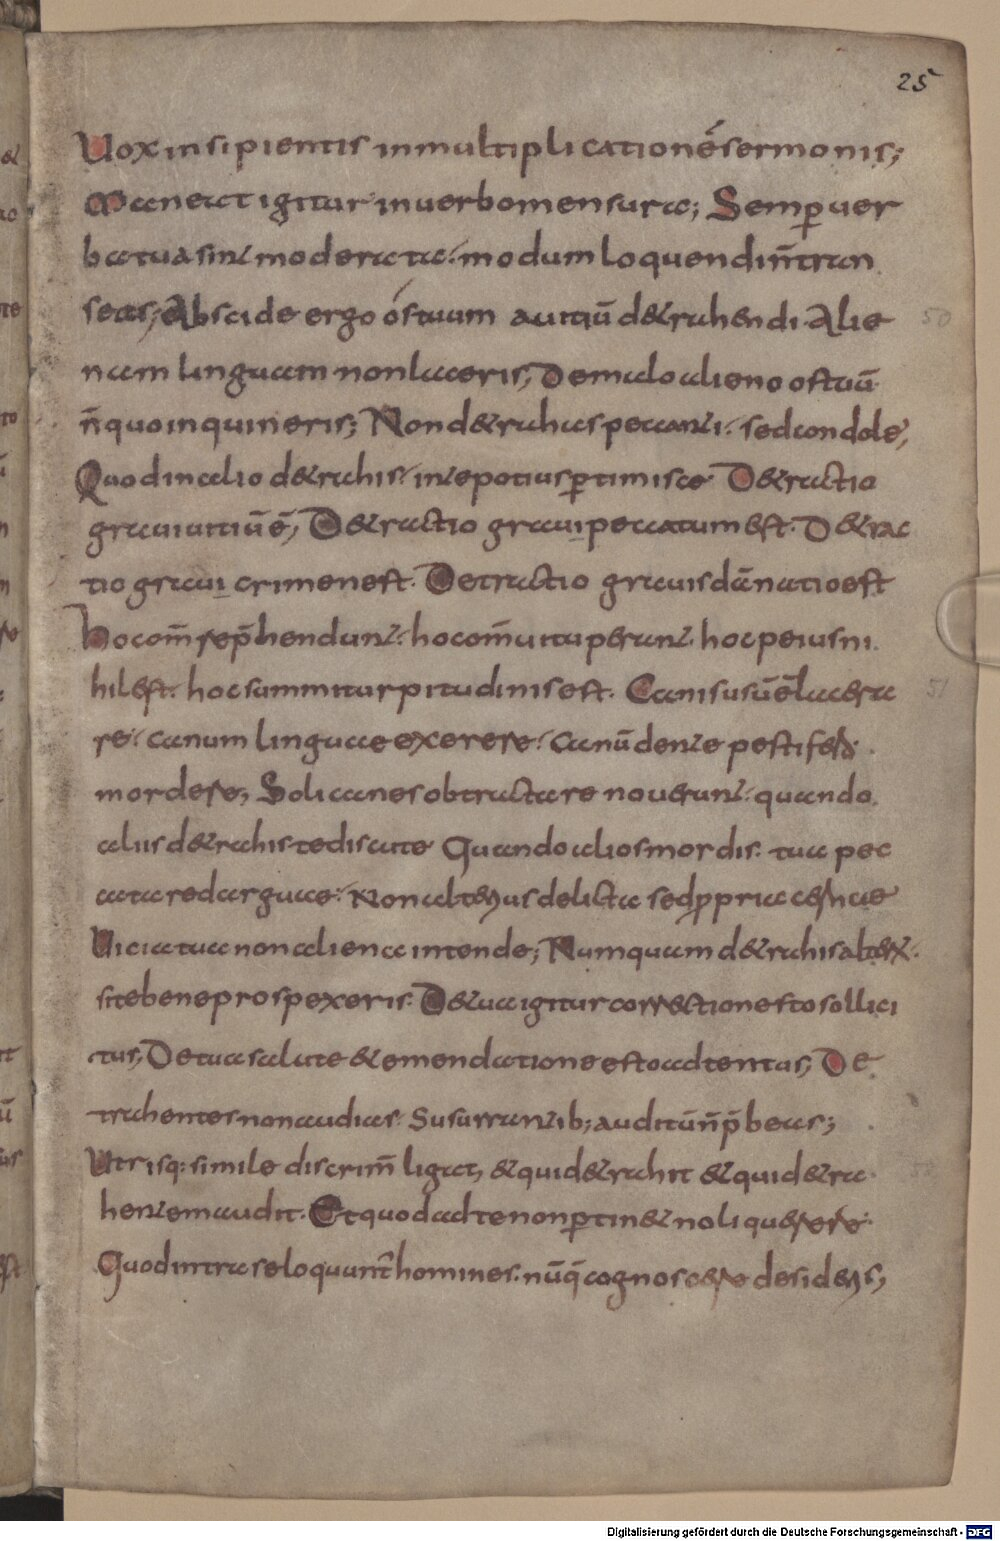 25
Uox insipientis in multiplicatione ē sermonis;
Maneat igitur in uerbo mensura; Semꝑ uer
ba tua sint moderata. modum loquendi n̄ tran
seas; Abscide ergo os tuum a uitiū detrahendi. Alie
50
nam linguam non laceris; De malo alieno os tuū
n̄ quoinquineris; Non detrahas peccanti. sed condole,
Quod in alio detrahis. in te potius ꝑtimisce Detractio
graui uitiū ē, Detractio graui peccatum est. Detrac
tio graui crimen est. Detractio grauis dānatio est
hoc om̄ rep̄hendunt. hoc om̄ uituperant. hoc peius ni
hil est. hoc summi turpitudinis est. Canis usū ē lacera
51
re. canum lingua exerere. Canū dente pestifero
mordere; Soli canes obtractare nouerunt. quando
aliis detrahis te discute Quando alios mordis. tua pec
cata redargue. Non alterius delicta sed ꝓpria cerne
Uicia tua non aliena intende; Numquam detrahis alteri.
si te bene prospexeris. De tua igitur correctione esto sollici
tus, De tua salute & emendatione esto adtentus; De
trahentes non audias. Susurrantib; auditū n̄ p̄beas;
Utrisq: simile discrim̄ ligat, & qui detrahit & qui detra
hentem audit. Et quod ad te non ꝑtin& noli querere.
Quod intra se loquunt̄ homines. nūq̄ cognoscere desideris;
Digitalisierung gefördert durch die Deutsche Forschungsgemeinschaft - DFG